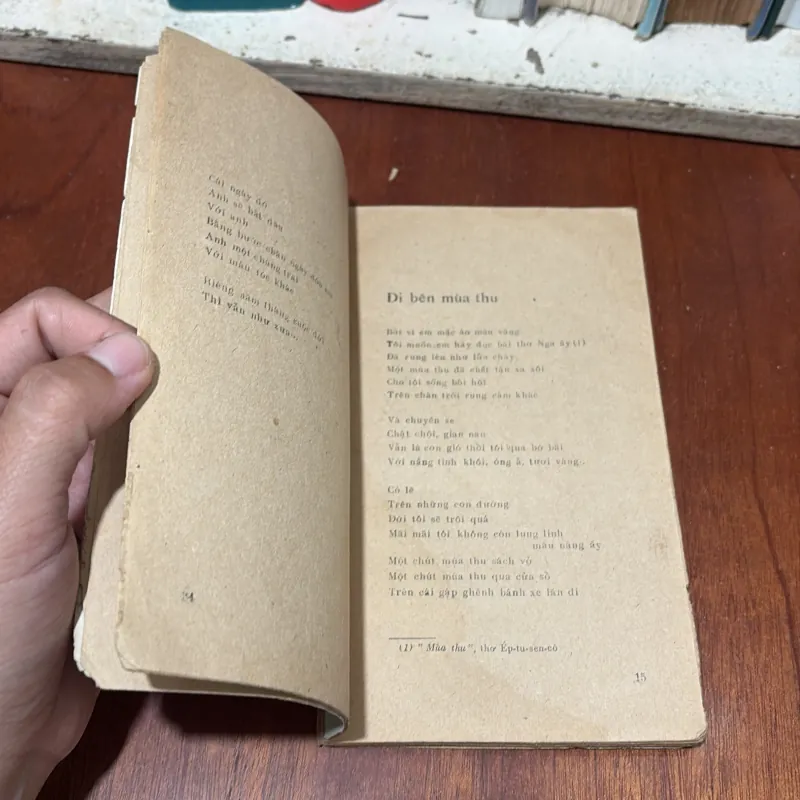 Cái ngày đó
Anh sẽ bắt đầu
Với anh
Bằng bước chân ngày đầu
Anh một chàng trai
Với màu tóc khác
Riêng năm tháng cuộc đời
Thì vẫn như xưa...
24
Đi bên mùa thu
Bởi vì em mặc áo màu vàng
Tôi muốn em hãy đọc bài thơ Nga ấy(1)
Đã rung lên như lửa cháy
Một mùa thu đã chết tận xa xôi
Cho tôi sống bồi hồi
Trên chân trời rung cảm khác
Và chuyến xe
Chật chội, gian nan
Vẫn là cơn gió thổi tôi qua bờ bãi
Với nắng tinh khôi, óng ả, tươi vàng.
Có lẽ
Trên những con đường
Đời tôi sẽ trôi quá
Mãi mãi tôi không còn lung linh
màu nàng ấy
Một chút mùa thu sách vở
Một chút mùa thu qua cửa sổ
Trên cái gập ghềnh bánh xe lăn đi
(1) "Mùa thu", thơ Ép-tu-sen-cô
15